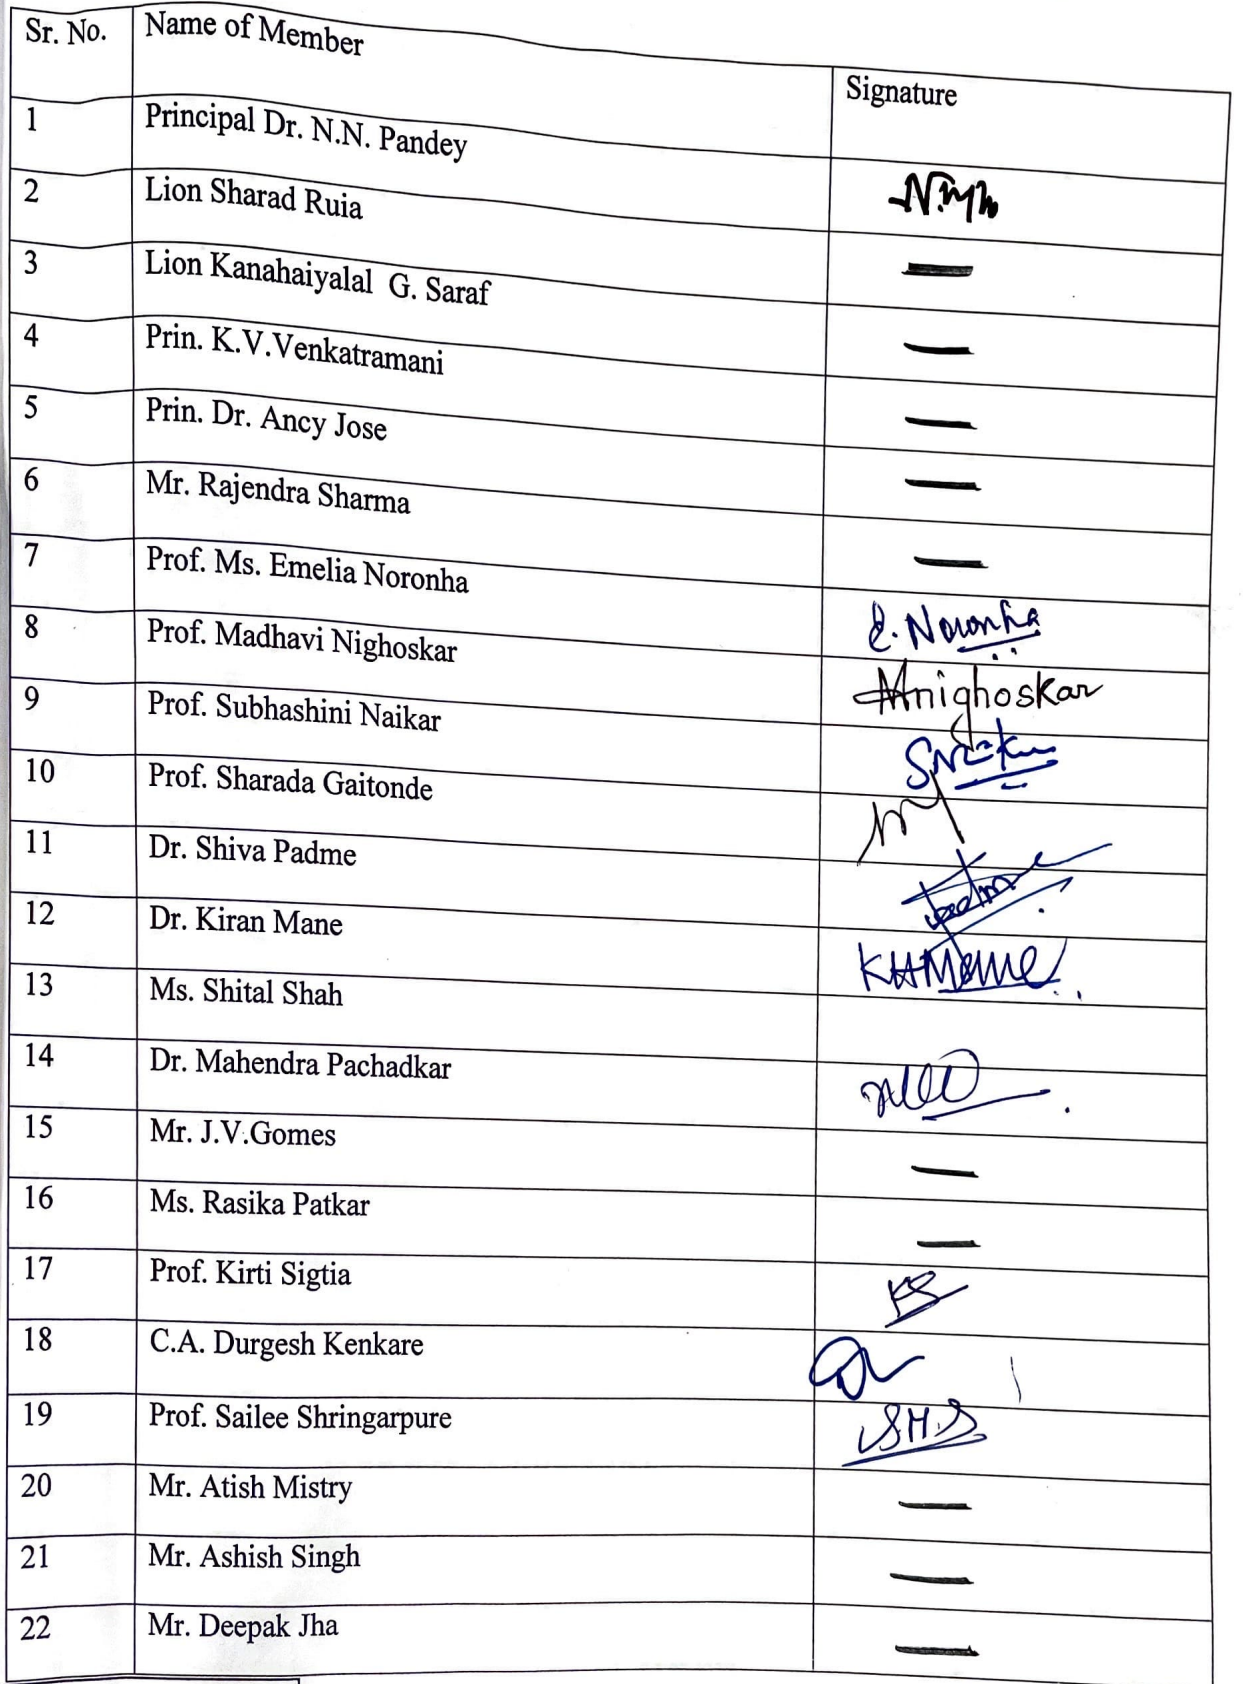 Sr. No. Name of Member Signature
1 Principal Dr. N.N. Pandey
2 Lion Sharad Ruia
3 Lion Kanahaiyalal G. Saraf
4 Prin. K.V.Venkatramani
5 Prin. Dr. Ancy Jose
6 Mr. Rajendra Sharma
7 Prof. Ms. Emelia Noronha E. Noronha
8 Prof. Madhavi Nighoskar Mnighoskar
9 Prof. Subhashini Naikar
10 Prof. Sharada Gaitonde
11 Dr. Shiva Padme
12 Dr. Kiran Mane KHMane
13 Ms. Shital Shah
14 Dr. Mahendra Pachadkar
15 Mr. J.V.Gomes
16 Ms. Rasika Patkar
17 Prof. Kirti Sigtia KS
18 C.A. Durgesh Kenkare
19 Prof. Sailee Shringarpure S.H.S
20 Mr. Atish Mistry
21 Mr. Ashish Singh
22 Mr. Deepak Jha